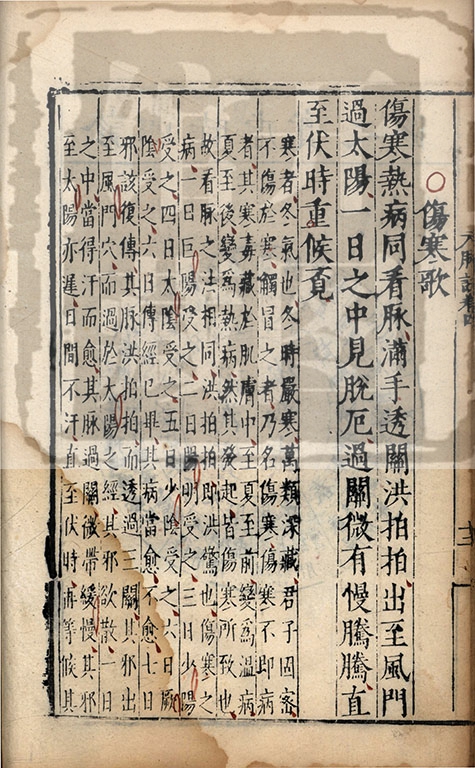 ○傷寒歌
傷寒熱病同看脉滿手透關洪拍拍出至風門
過太陽一日之中見脫厄過關微有慢騰騰直
至伏時重候覔
寒者冬氣也冬時嚴寒萬類深藏君子固密
不傷於寒觸冒之者乃名傷寒傷寒不即病
者其寒毒藏於肌膚中至夏至前變爲溫病
夏至後變爲熱病然其發起皆傷寒所致也
故看脉之法相同洪拍拍即洪驚也傷寒之
病一日巨陽受之二日陽明受之三日少陽
受之四日太陰受之五日少陰受之六日厥
陰受之六日傳經已畢其病當愈不愈七日
邪該復傳其脉洪拍拍而透過三關其邪出
至風門穴而過於太陽之經其邪欲散一日
之中當得汗而愈其脉過關微帶緩慢其邪
至太陽亦遲日間不汗直至伏時再等候其